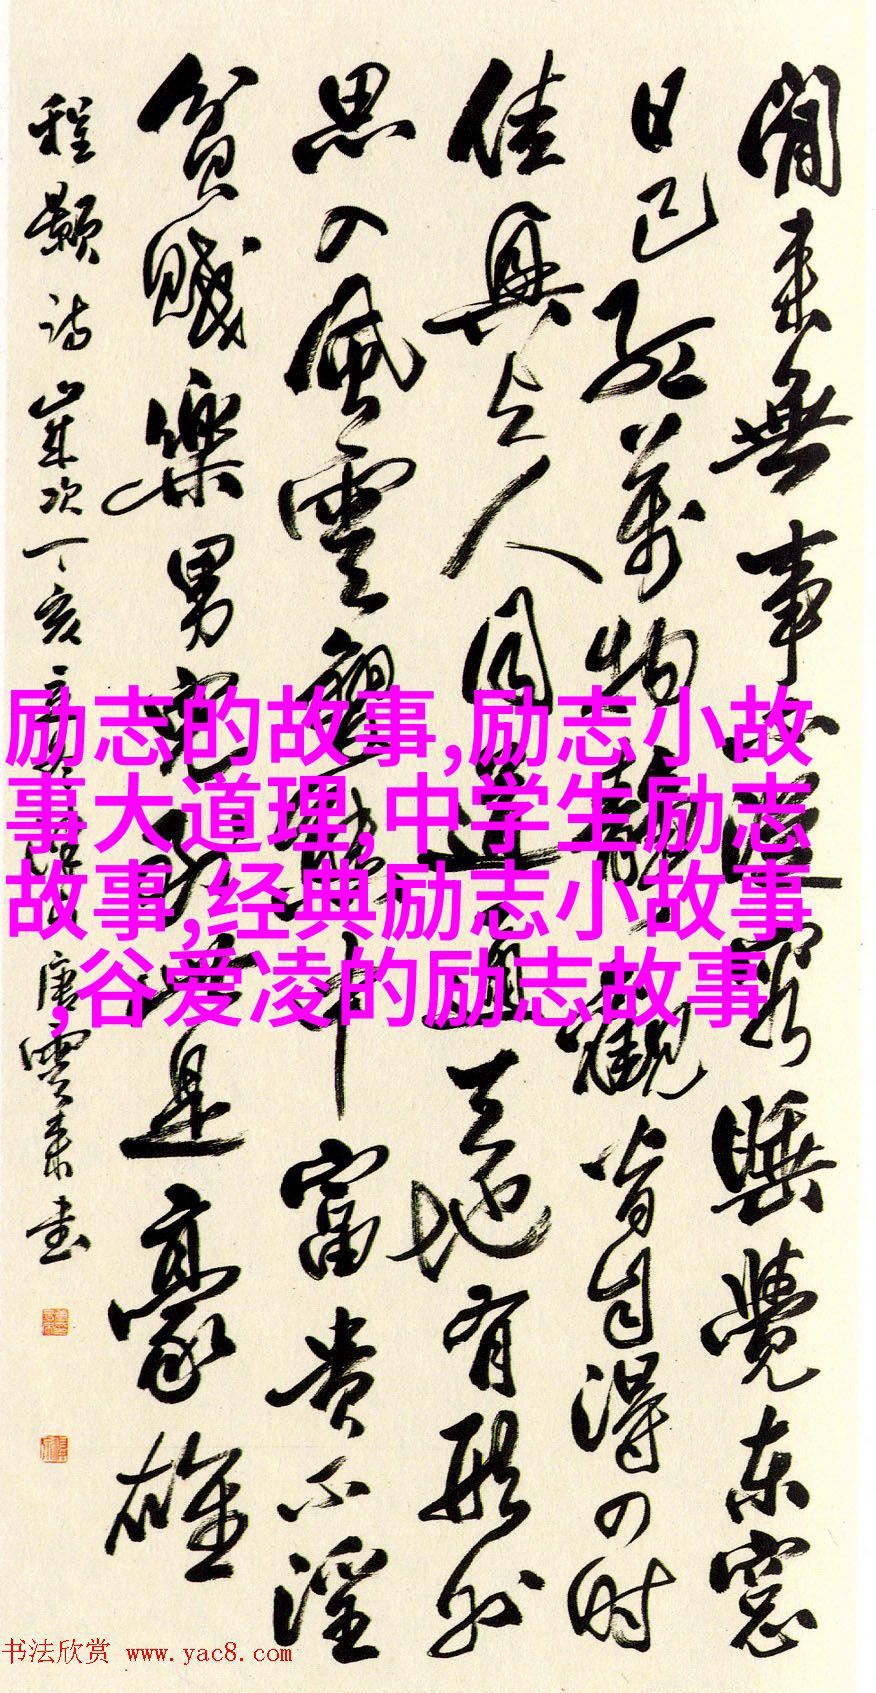 閒来無事不從容睡覺东窓
日已紅萬物靜觀皆自得四时
佳興与人同道通天地有形外
思入風雲變態中富貴不淫
貧賤樂男兒到此是豪雄
程顥詩歲次丁亥唐雲来書
励志的故事,励志小故
事大道理,中学生励志
故事,经典励志小故事
,谷爱凌的励志故事
书法欣赏 www.yac8.com